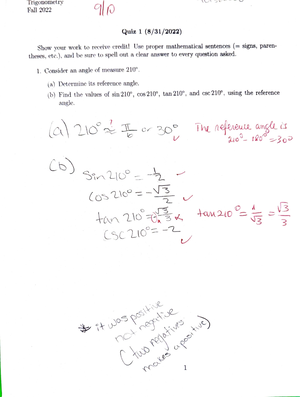 Trigonometry
Fall 2022
9/10
Quiz 1 (8/31/2022)
Show your work to receive credit! Use proper mathematical sentences (= signs, paren-
theses, etc.), and be sure to spell out a clear answer to every question asked.
1. Consider an angle of measure 210°.
(a) Determine its reference angle.
(b) Find the values of sin 210°, cos 210°, tan 210°, and csc 210°, using the reference
angle.
(a) 210° π/6 or 30°
The reference angle is
210° - 180° = 30°
(b) sin 210° = -1/2
cos 210° = -√3/2
tan 210° =
tan 210° = 1/√3 = √3/3
csc 210° = -2
it was positive
not negative
(two negatives
makes a positive)
1